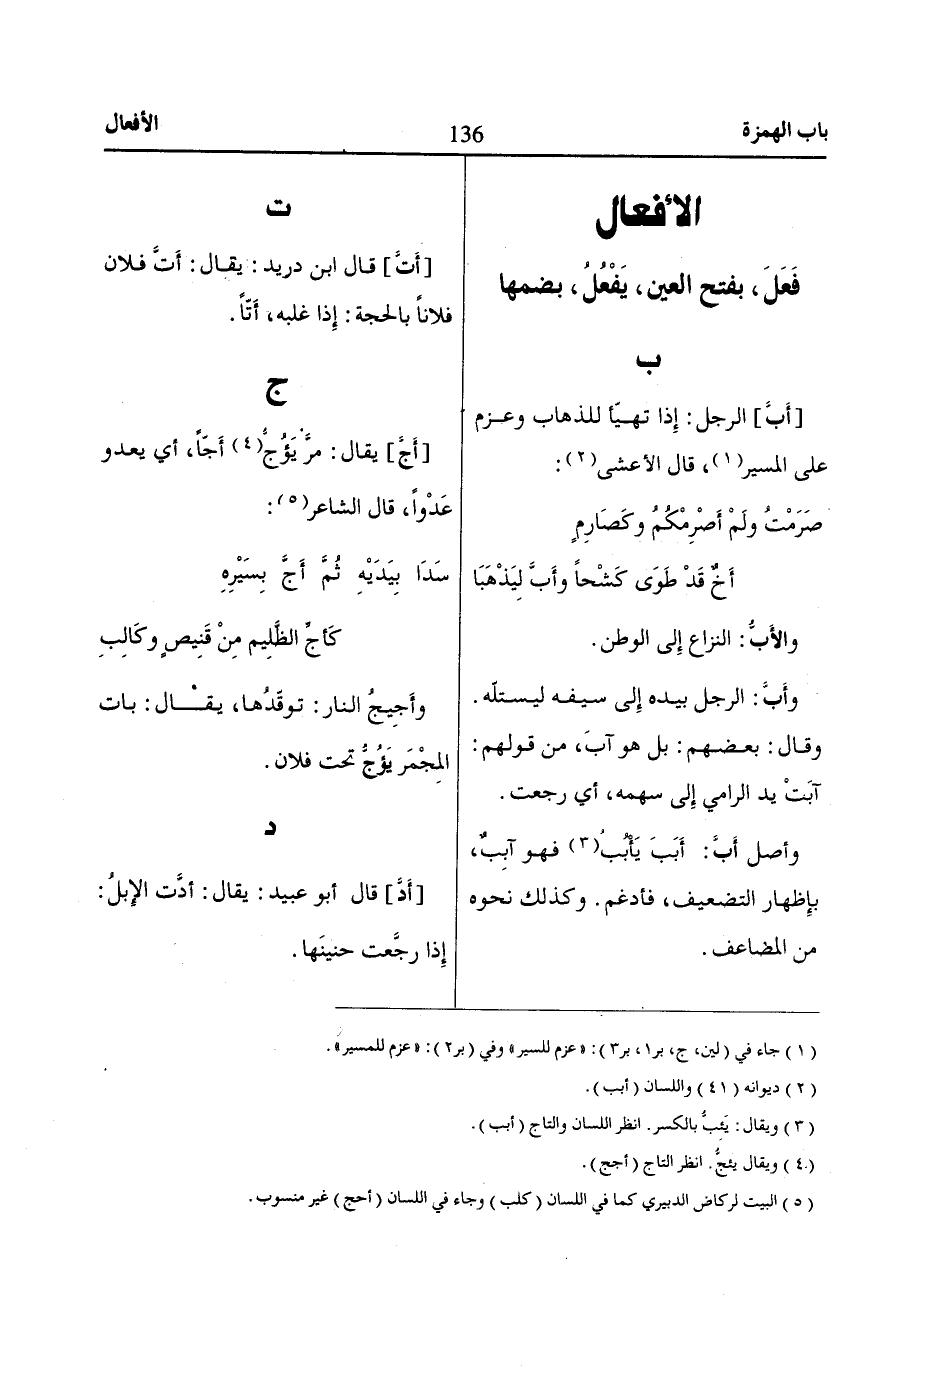 باب الهمزة
136
الأفعال
الأفعال
فَعَلَ، بفتح العين، يَفْعُلُ، بضمها
ب
[أَبَّ] الرجل: إذا تهيّأ للذهاب وعزم
على المسير(١)، قال الأعشى(٢):
صَرَمْتُ ولَمْ أَصْرِمْكُمُ وكَصَارِمٍ
أخٌ قَدْ طَوَى كَشْحاً وأبَّ لِيَذْهَبَا
والأبُّ: النزاع إلى الوطن.
وأبَّ: الرجل بيده إلى سيفه ليستلّه.
وقال: بعضهم: بل هو آبَ، من قولهم:
آبَتْ يد الرامي إلى سهمه، أي رجعت.
وأصل أبَّ: أَبَبَ يَأْبُبُ(٣) فهو آببٌ،
بإظهار التضعيف، فأدغم. وكذلك نحوه
من المضاعف.
ت
[أتَّ] قال ابن دريد: يقال: أتَّ فلان
فلاناً بالحجة: إذا غلبه، أتّاً.
ج
[أجَّ] يقال: مرَّ يَؤُجُّ(٤) أجّاً، أي يعدو
عَدْواً، قال الشاعر(٥):
سَدَا بِيَدَيْهِ ثُمَّ أجَّ بِسَيْرِهِ
كأجِّ الظَّلِيمِ مِنْ قَنِيصٍ وكَالِبِ
وأجيجُ النار: توقّدُها، يقال: بات
المِجْمَر يَؤُجُّ تحت فلان.
د
[أدَّ] قال أبو عبيد: يقال: أدَّت الإبلُ:
إذا رجَّعت حنينَها.
(١) جاء في (لين، ج، بر١، بر٣): «عزم للسير» وفي (بر٢): «عزم للمسير».
(٢) ديوانه (٤١) واللسان (أبب).
(٣) ويقال: يَئبُّ بالكسر. انظر اللسان والتاج (أبب).
(٤) ويقال يئجُّ. انظر التاج (أجج).
(٥) البيت لركاض الدبيري كما في اللسان (كلب) وجاء في اللسان (أحج) غير منسوب.